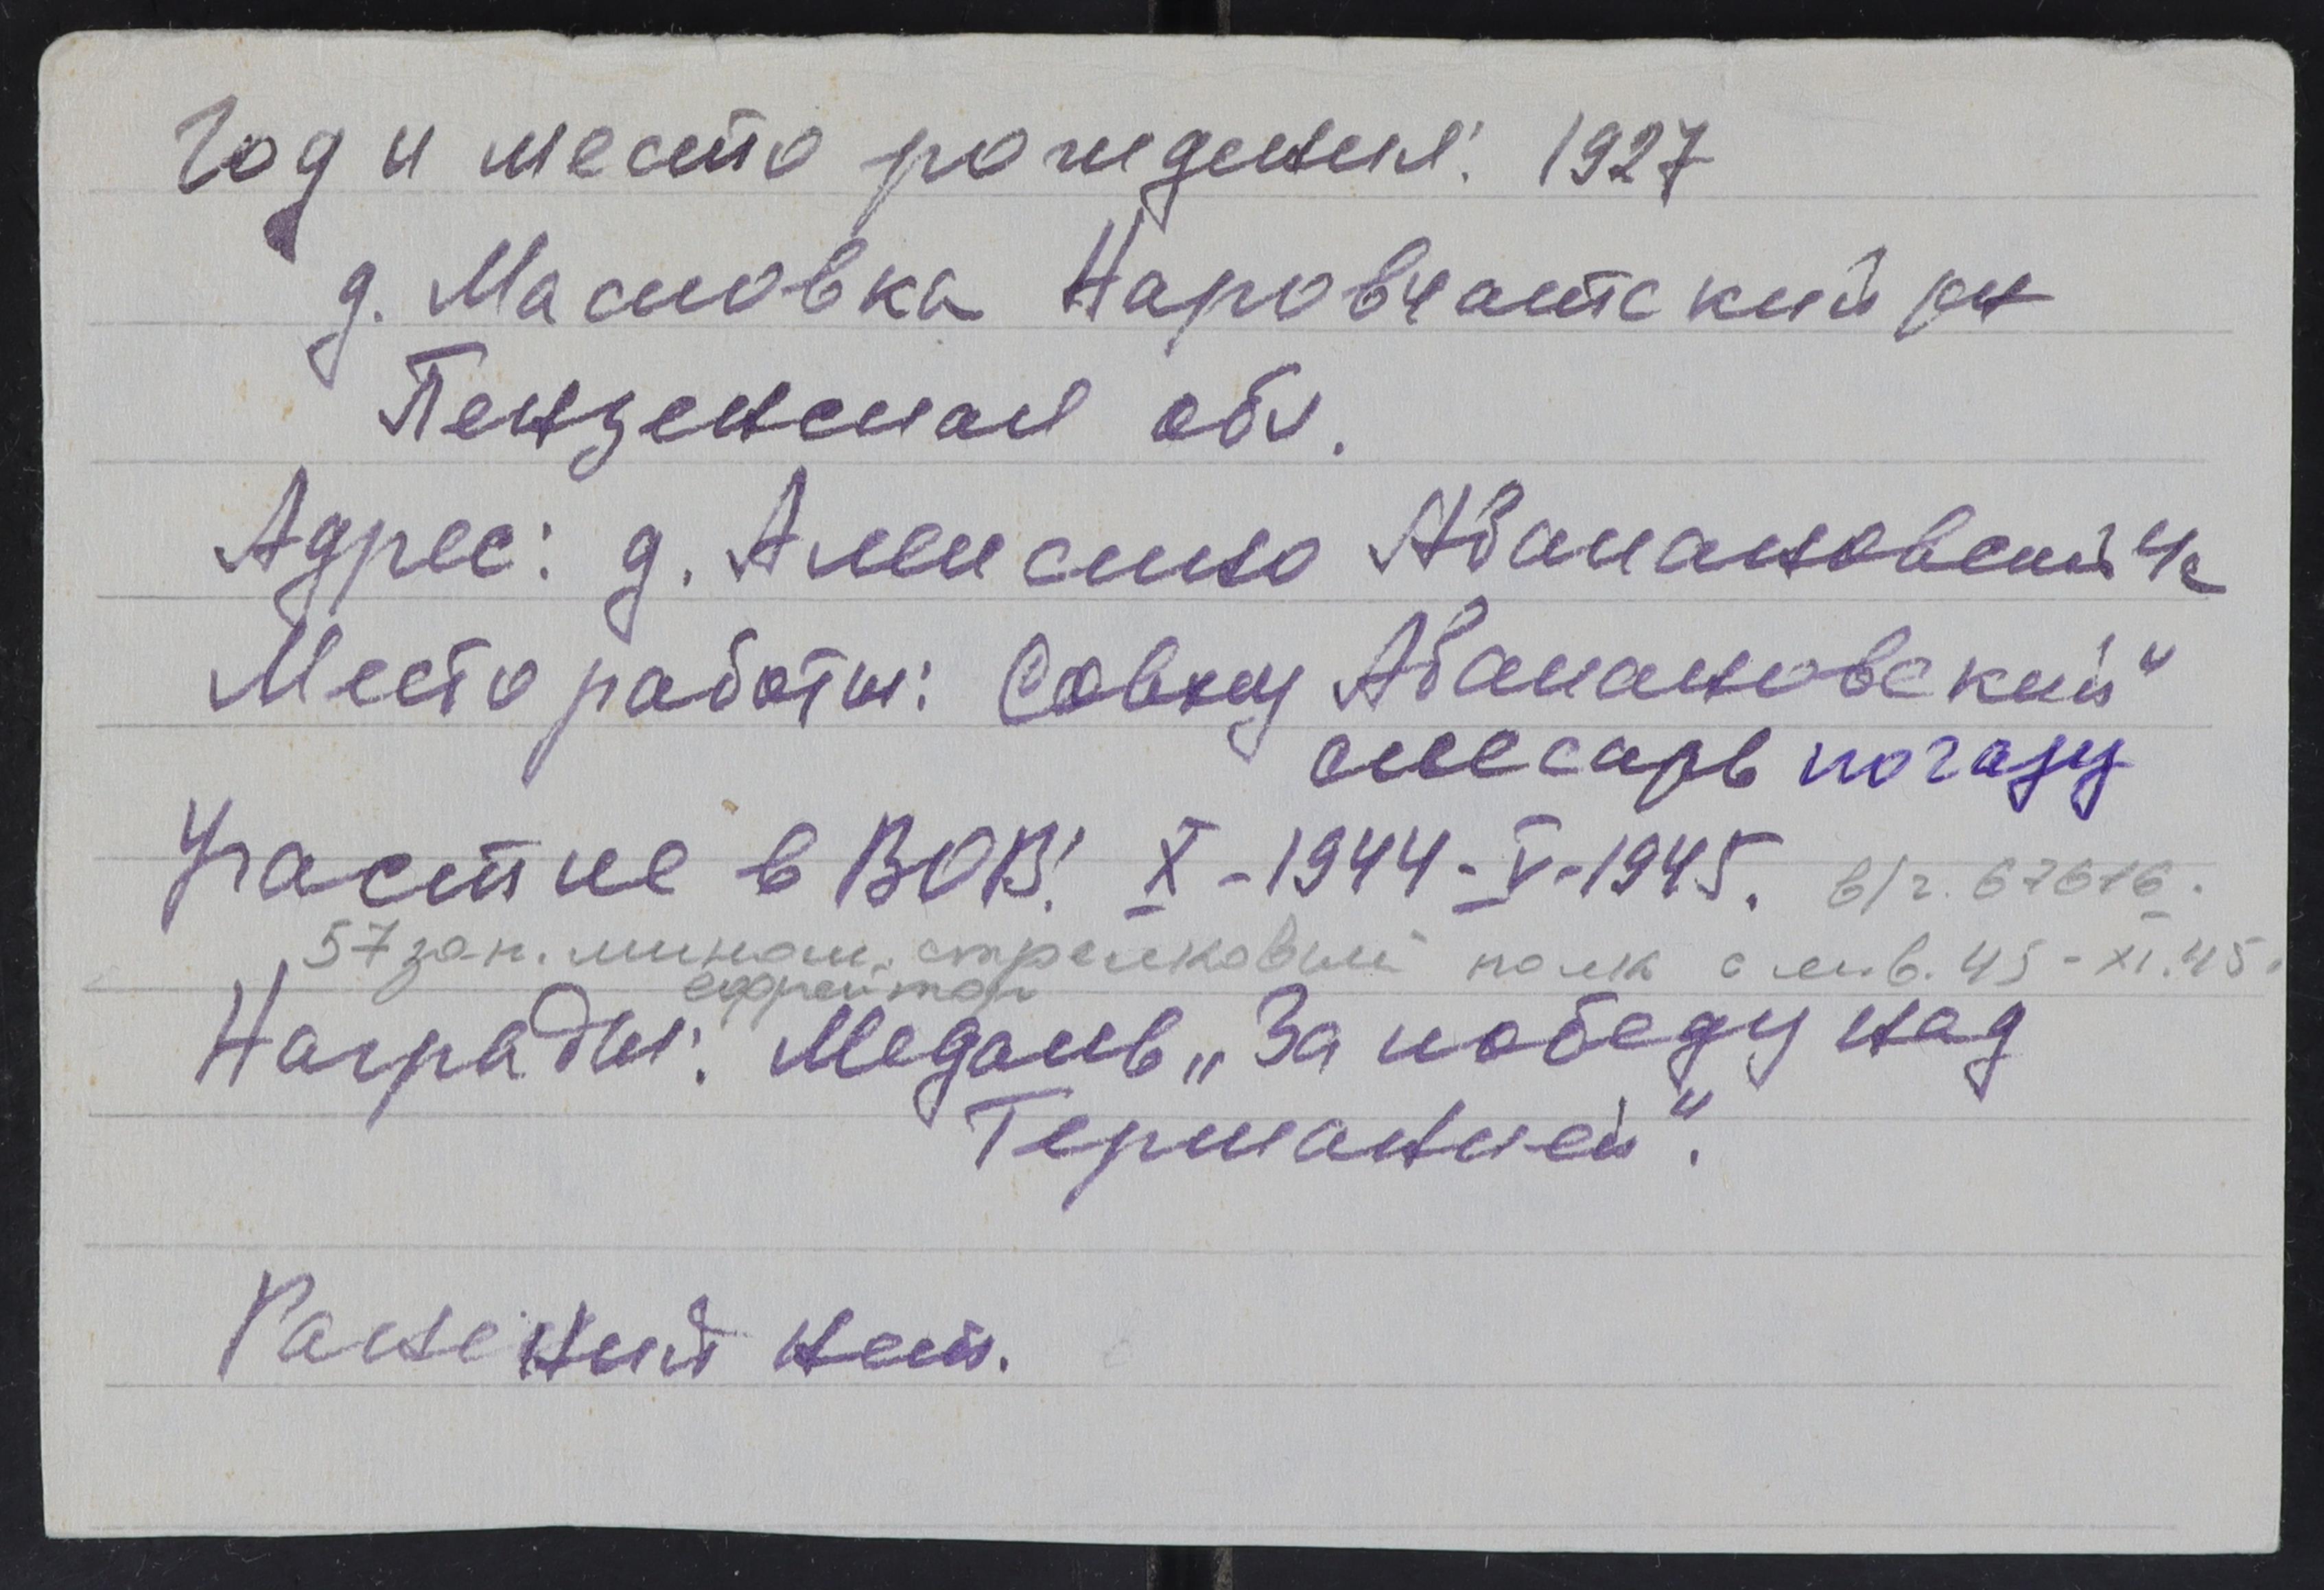 Год и место рождения: 1927
д. Масловка Наровчатский рн
Пензенская обл.
Адрес: д. Алексино Абакановский
Место работы: Совхоз Абакановский"
слесарь по газу
Участие в ВОВ: X-1944-V-1945. в/ч. 67616.
57 зап. мином. стрелковый полк с янв. 45-XI.45.
ефрейтор
Награды: Медаль „За победу над
Германией".
Ранений нет.